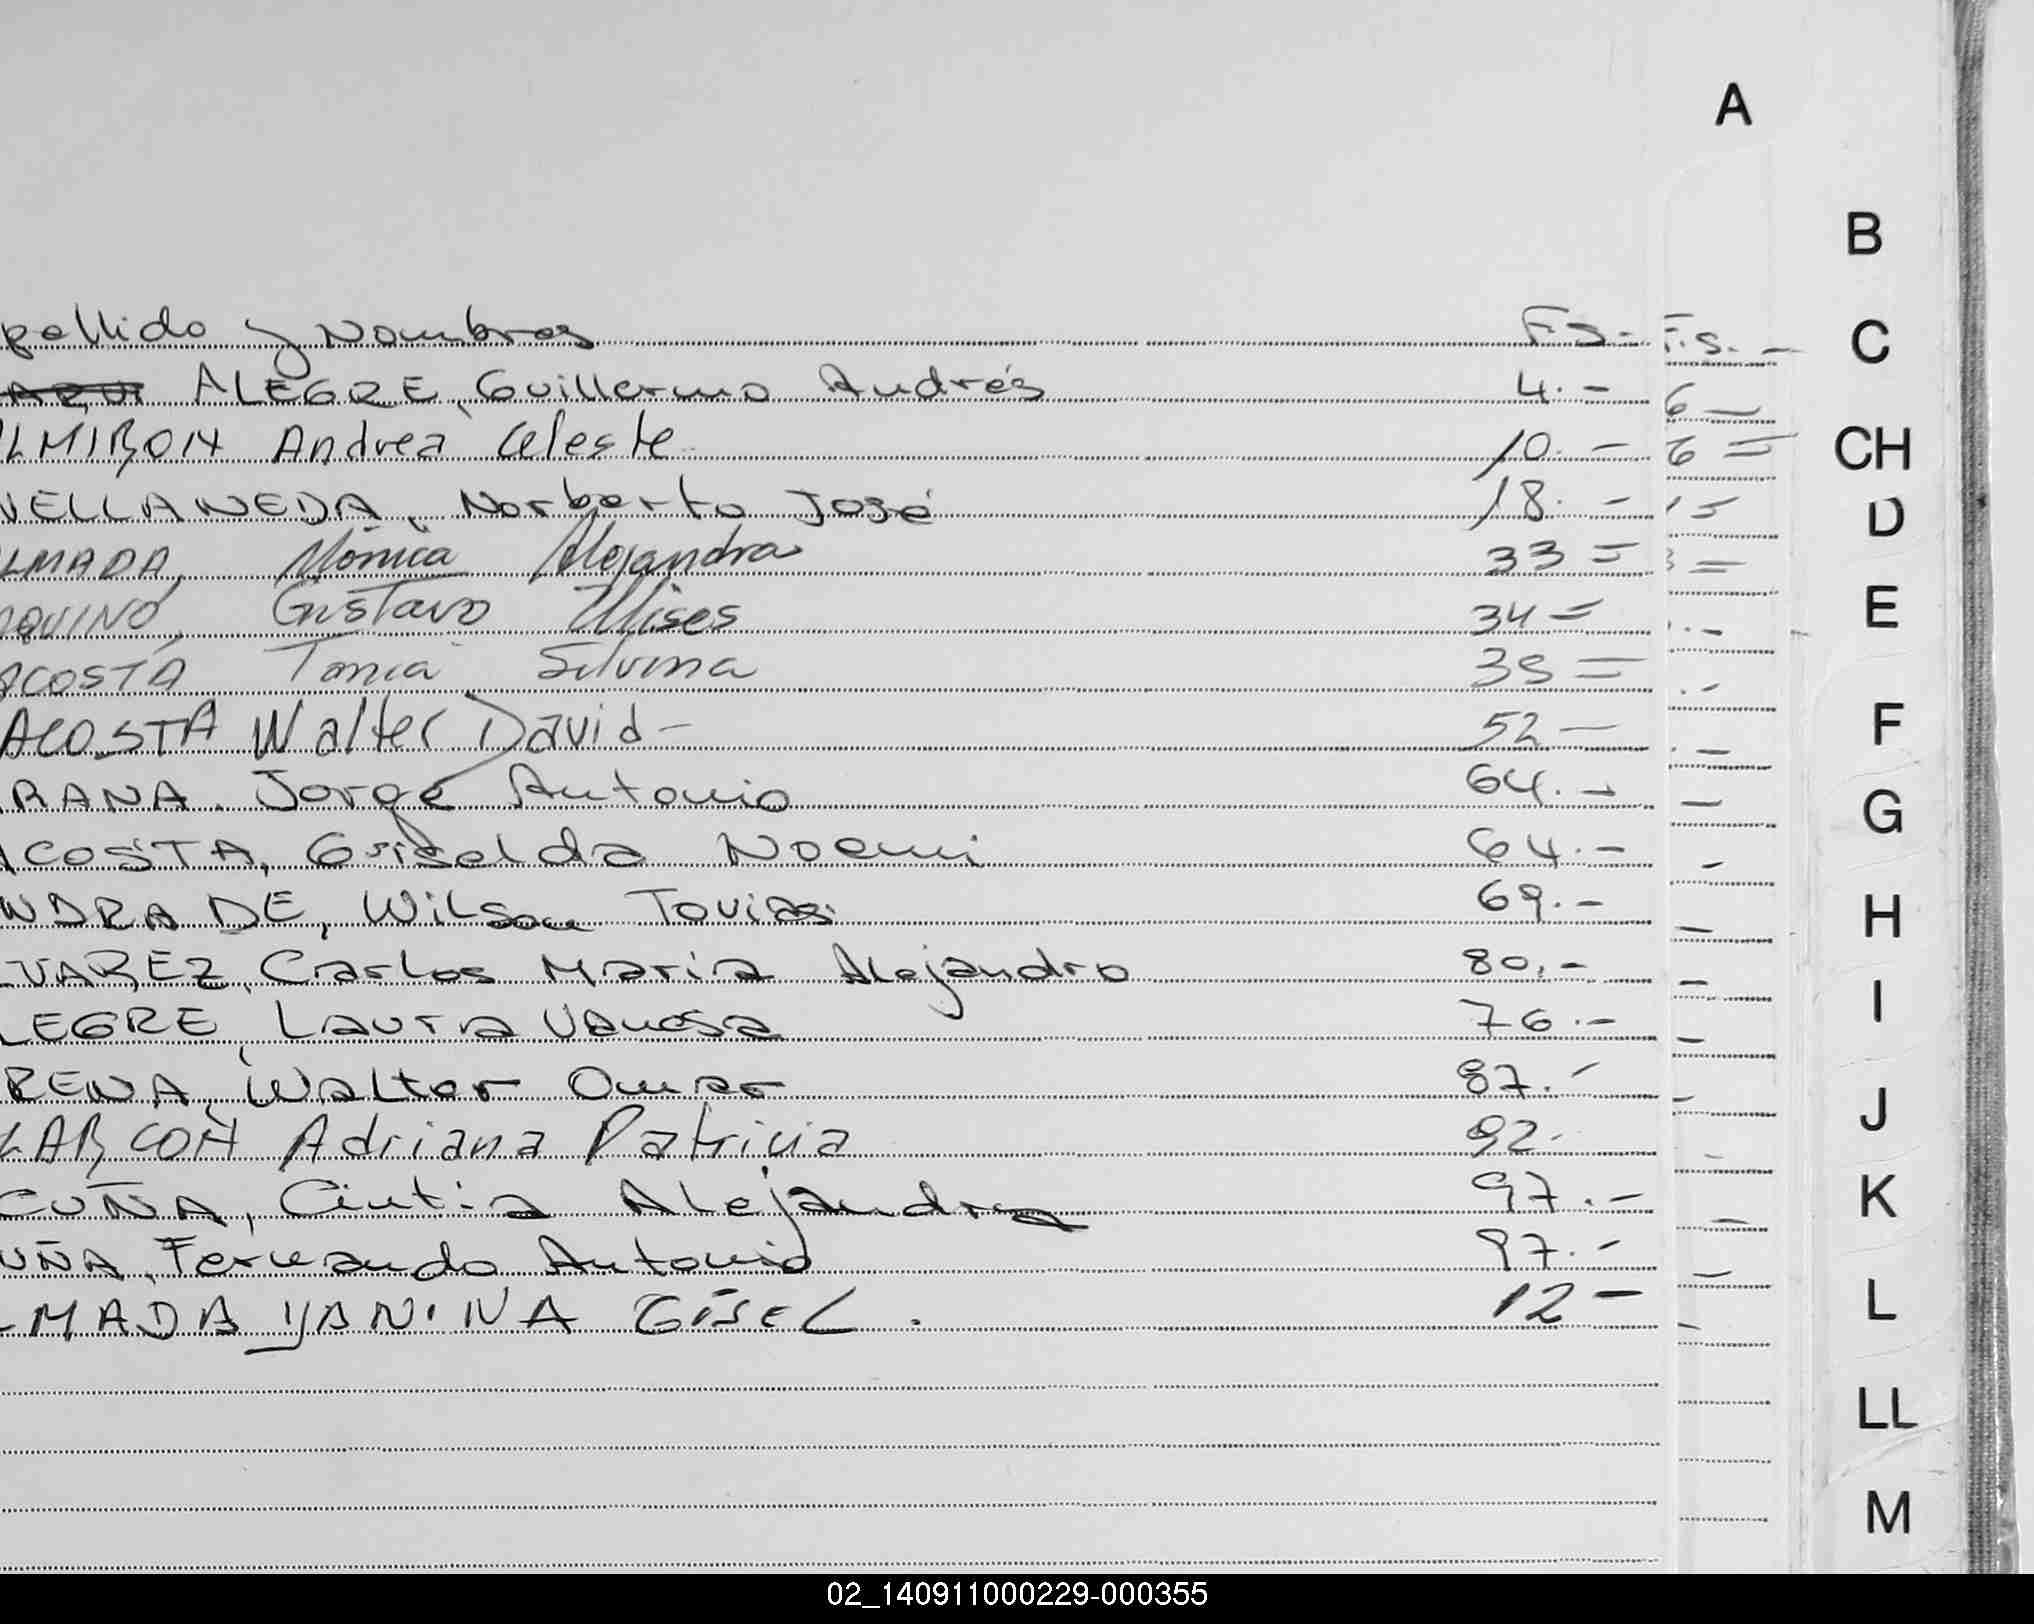 A
B
C
CH
D
E
F
G
H
I
J
K
L
LL
M
pellido y Nombres Fs.- F.s. -
ALEGRE, Guillermo Andrés 4.- 6 -
LMIRON Andrea Celeste 10.- 6 =
VELLANEDA, Norberto José 18.-
LMADA, Mónica Alejandra 33 =
QUINO, Gustavo Ulises 34 =
ACOSTA Tania Silvina 35 =
ACOSTA Walter David - 52 -
RANA. Jorge Antonio 64.-
ACOSTA, Griselda Noemi 64.-
NDRADE, Wilson Tovias 69.-
VAREZ, Carlos Maria Alejandro 80.-
LEGRE, Laura Vanesa 76.-
RENA, Walter Omar 87.-
LARCON Adriana Patricia 92.-
CUÑA, Cintia Alejandra 97.-
UÑA, Fernando Antonio 97.-
LMADA YANINA GISEL. 12 -
02_140911000229-000355